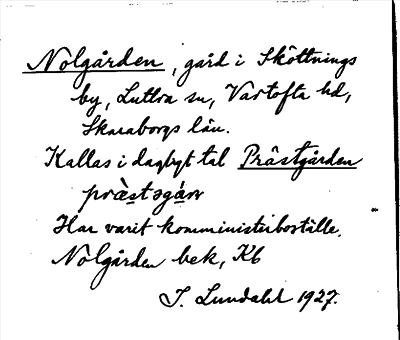 Nolgården, gård i Skottnings
by, Luttra sn, Vartofta hd,
Skaraborgs län.
Kallas i dagligt tal Prästgården
præ̀stəgáɽ
Har varit komministerboställe.
Nolgården bek, Kb
J. Lundahl 1927.